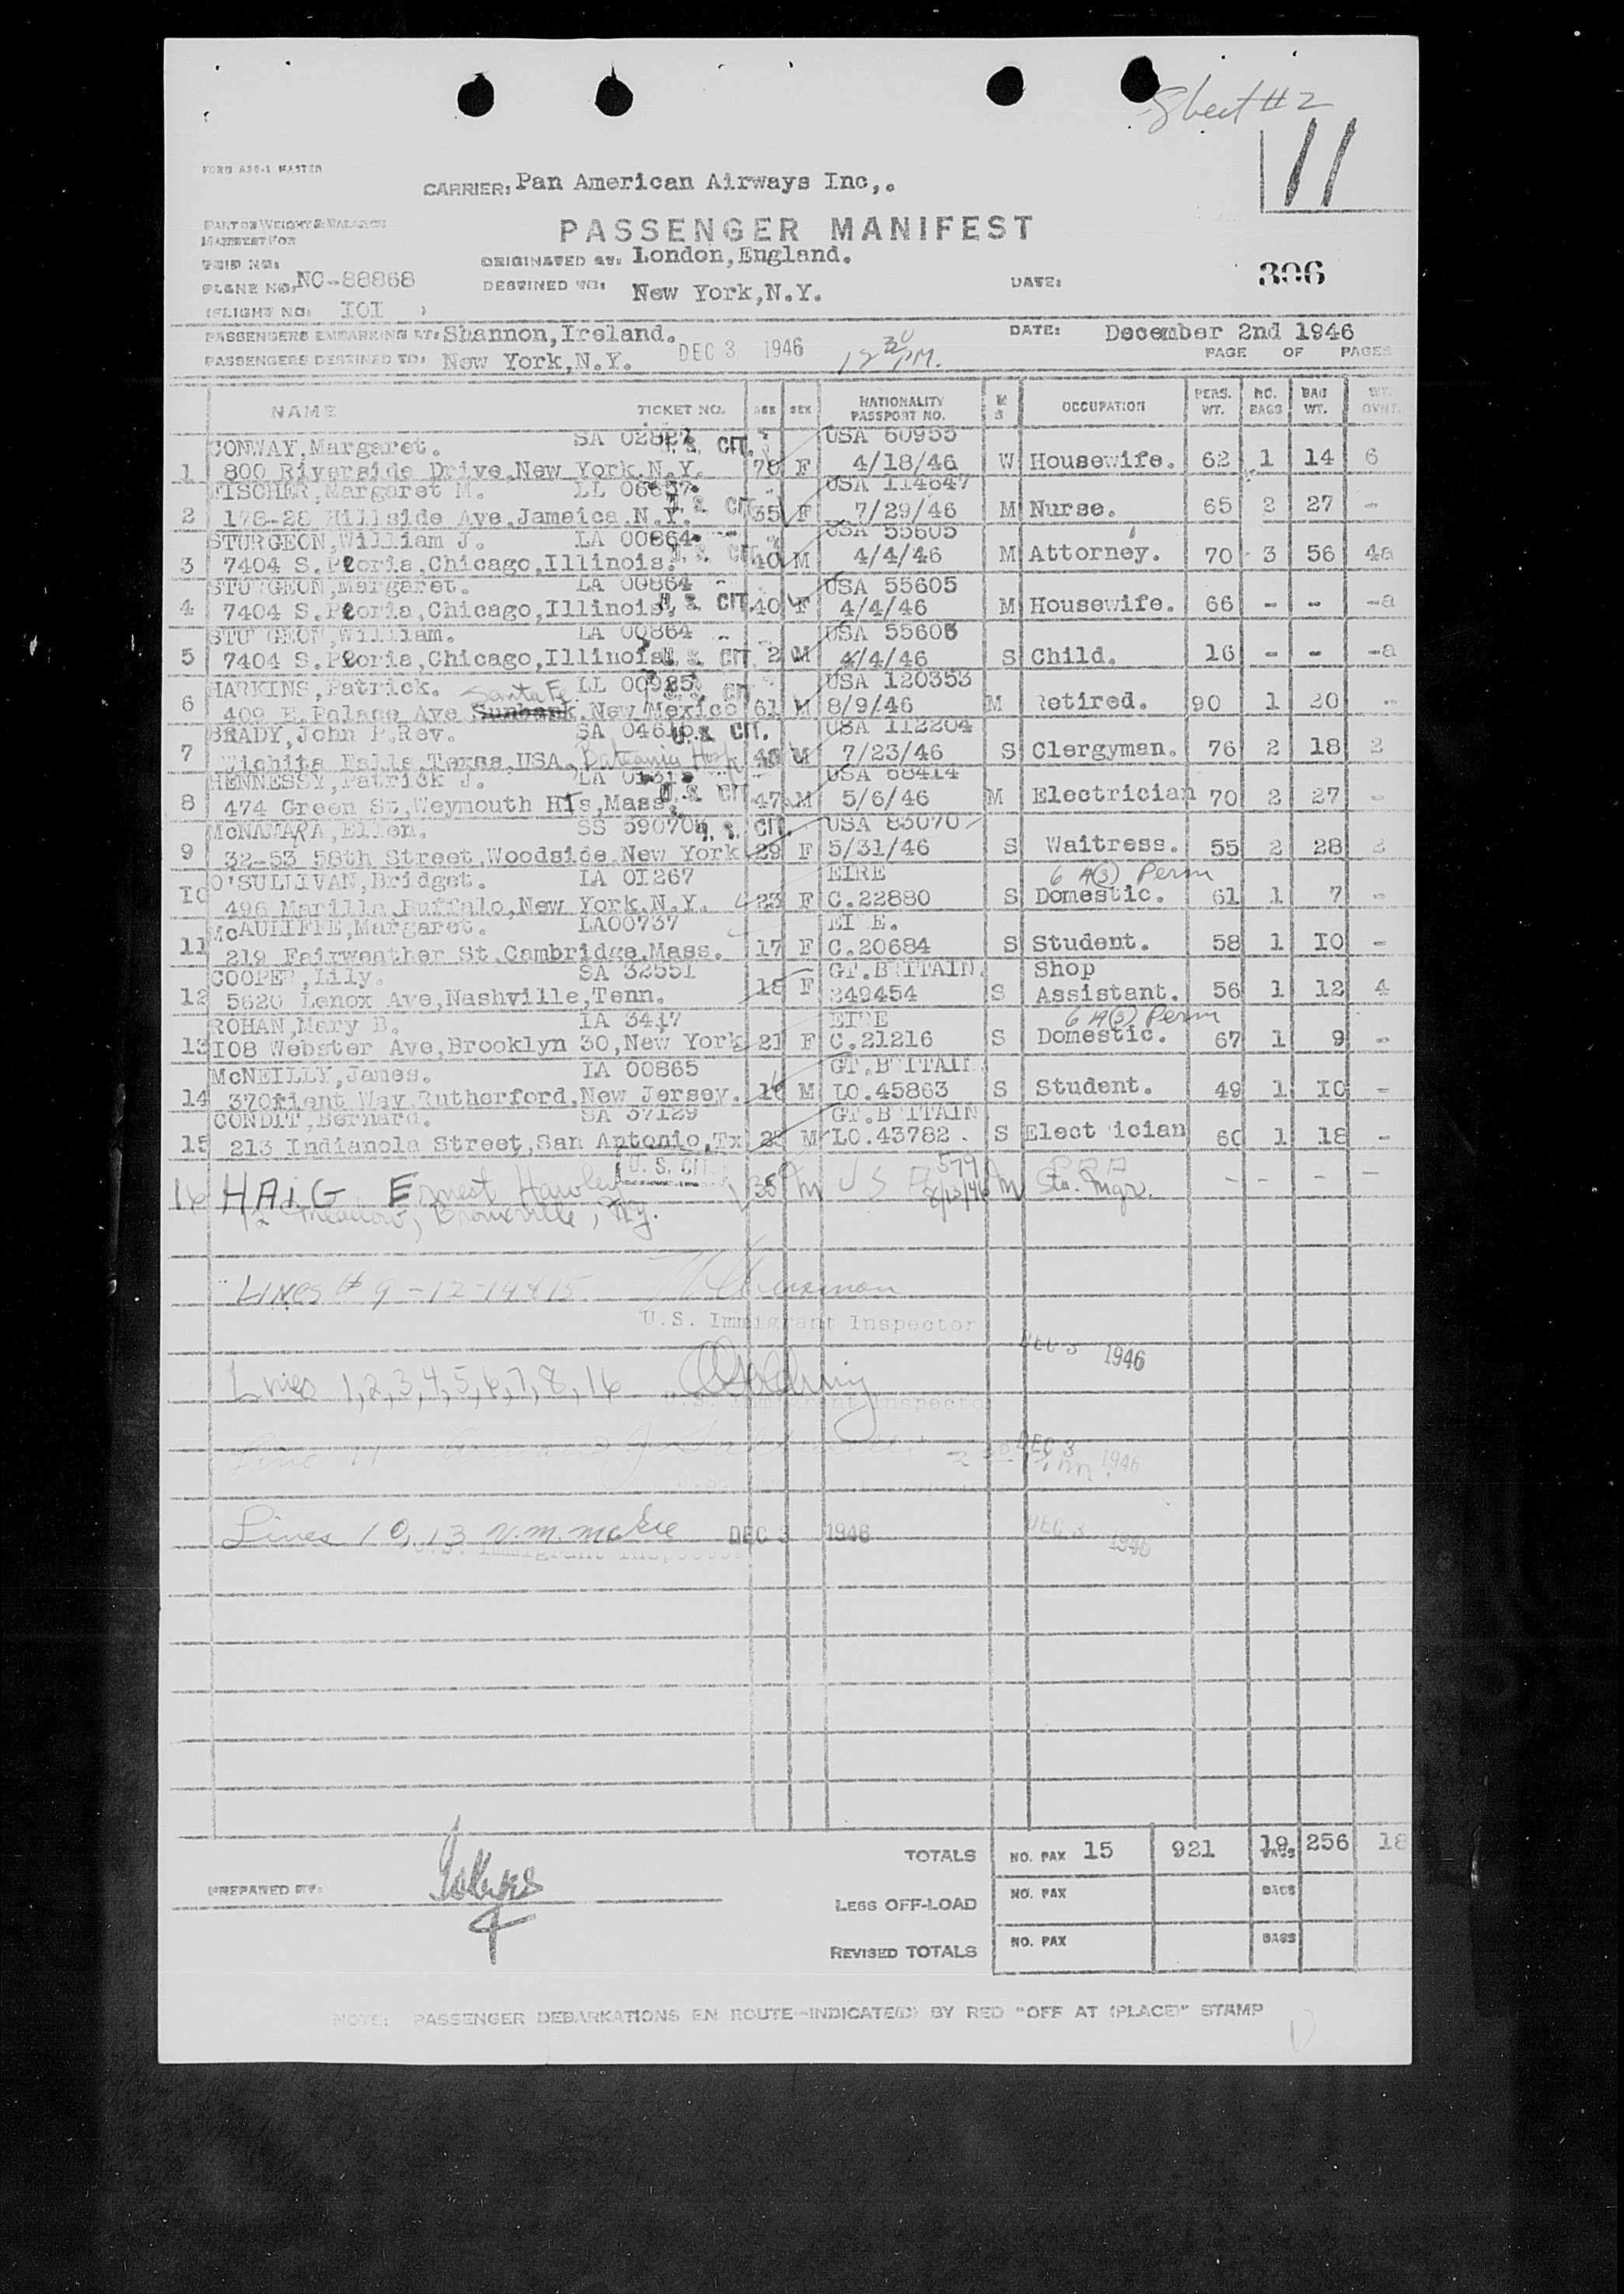 Sheet #2
11
FORM ASC-1 MASTER
CARRIER: Pan American Airways Inc,.
PART OF WEIGHT & BALANCE
MANIFEST FOR
PASSENGER MANIFEST
TRIP NO:
ORIGINATED AT: London, England.
306
PLANE NO: NC-88868
DESTINED TO: New York, N.Y.
DATE:
(FLIGHT NO: IOI )
PASSENGERS EMBARKING AT: Shannon, Ireland.
DATE: December 2nd 1946
PASSENGERS DESTINED TO: New York, N.Y. DEC 3 1946 12 30 PM.
PAGE OF PAGES
NAME TICKET NO. AGE SEX NATIONALITY PASSPORT NO. M S OCCUPATION PERS. WT. NO. BAGS BAG WT. WT. OVHT.
CONWAY, Margaret. SA 02827 U.S. CIT. USA 60955
1 800 Riverside Drive, New York, N.Y. F 4/18/46 W Housewife. 62 1 14 6
FISCHER, Margaret M. LL 06657 USA 114647
2 178-28 Hillside Ave, Jamaica, N.Y. U.S. CIT 35 F 7/29/46 M Nurse. 65 2 27 -
STURGEON, William J. LA 00864 USA 55605
3 7404 S. Peoria, Chicago, Illinois. U.S. CIT 40 M 4/4/46 M Attorney. 70 3 56 4a
STURGEON, Margaret. LA 00864 USA 55605
4 7404 S. Peoria, Chicago, Illinois. U.S. CIT. 40 F 4/4/46 M Housewife. 66 - - -a
STURGEON, William. LA 00864 USA 55605
5 7404 S. Peoria, Chicago, Illinois. U.S. CIT 2 M 4/4/46 S Child. 16 - - -a
HARKINS, Patrick. Santa Fe LL 00985 U.S. CIT USA 120353
6 409 E. Palace Ave Sunbank, New Mexico 61 M 8/9/46 M Retired. 90 1 20 -
BRADY, John P. Rev. SA 04616 U.S. CIT. USA 112204
7 Wichita Falls, Texas, USA. Hosp 48 M 7/23/46 S Clergyman. 76 2 18 2
HENNESSY, Patrick J. LA USA 68414
8 474 Green St, Weymouth Hts, Mass. U.S. CIT 47 M 5/6/46 M Electrician 70 2 27 -
McNAMARA, Ellen. SS 59070 U.S. CIT. USA 83070
9 32-53 58th Street, Woodside, New York 29 F 5/31/46 S Waitress. 55 2 28 2
O'SULLIVAN, Bridget. LA OI267 EIRE 6 4(3) Perm
10 496 Marilla, Buffalo, New York, N.Y. 23 F C.22880 S Domestic. 61 1 7 -
McAULIFFE, Margaret. LA00737 EI E.
11 219 Fairweather St. Cambridge, Mass. 17 F C.20684 S Student. 58 1 IO -
COOPER, Lily. SA 32551 GT.BRITAIN. Shop
12 5620 Lenox Ave, Nashville, Tenn. 18 F 249454 S Assistant. 56 1 12 4
ROHAN, Mary B. LA 3417 EIRE 6 4(3) Perm
13 I08 Webster Ave, Brooklyn 30, New York 21 F C.21216 S Domestic. 67 1 9 -
McNEILLY, James. LA 00865 GT.BRITAIN
14 37Orient Way, Rutherford, New Jersey. 16 M LO.45863 S Student. 49 1 IO -
CONDIT, Bernard. SA 37129 GT.BRITAIN
15 213 Indianola Street, San Antonio, Tx M LO.43782. S Electrician 60 1 18 -
U.S. CIT. 579
16 HAIG Ernest Hawley 35 M U S 8/13/46 M Sta. Mgr. - - - -
12 Meadow, Bronxville, NY.
LINES # 9-12-14&15
U.S. Immigrant Inspector
DEC 3 1946
Lines 1,2,3,4,5,6,7,8,16
U.S. Immigrant Inspector
Line 11 DEC 3 1946
Lines 10, 13 DEC 3 1946 DEC 3 1946
U.S. Immigrant Inspector
TOTALS NO. PAX 15 921 19 BAGS 256 18
PREPARED BY:
LESS OFF-LOAD NO. PAX BAGS
REVISED TOTALS NO. PAX BAGS
NOTE: PASSENGER DEBARKATIONS EN ROUTE-INDICATE(D) BY RED "OFF AT (PLACE)" STAMP